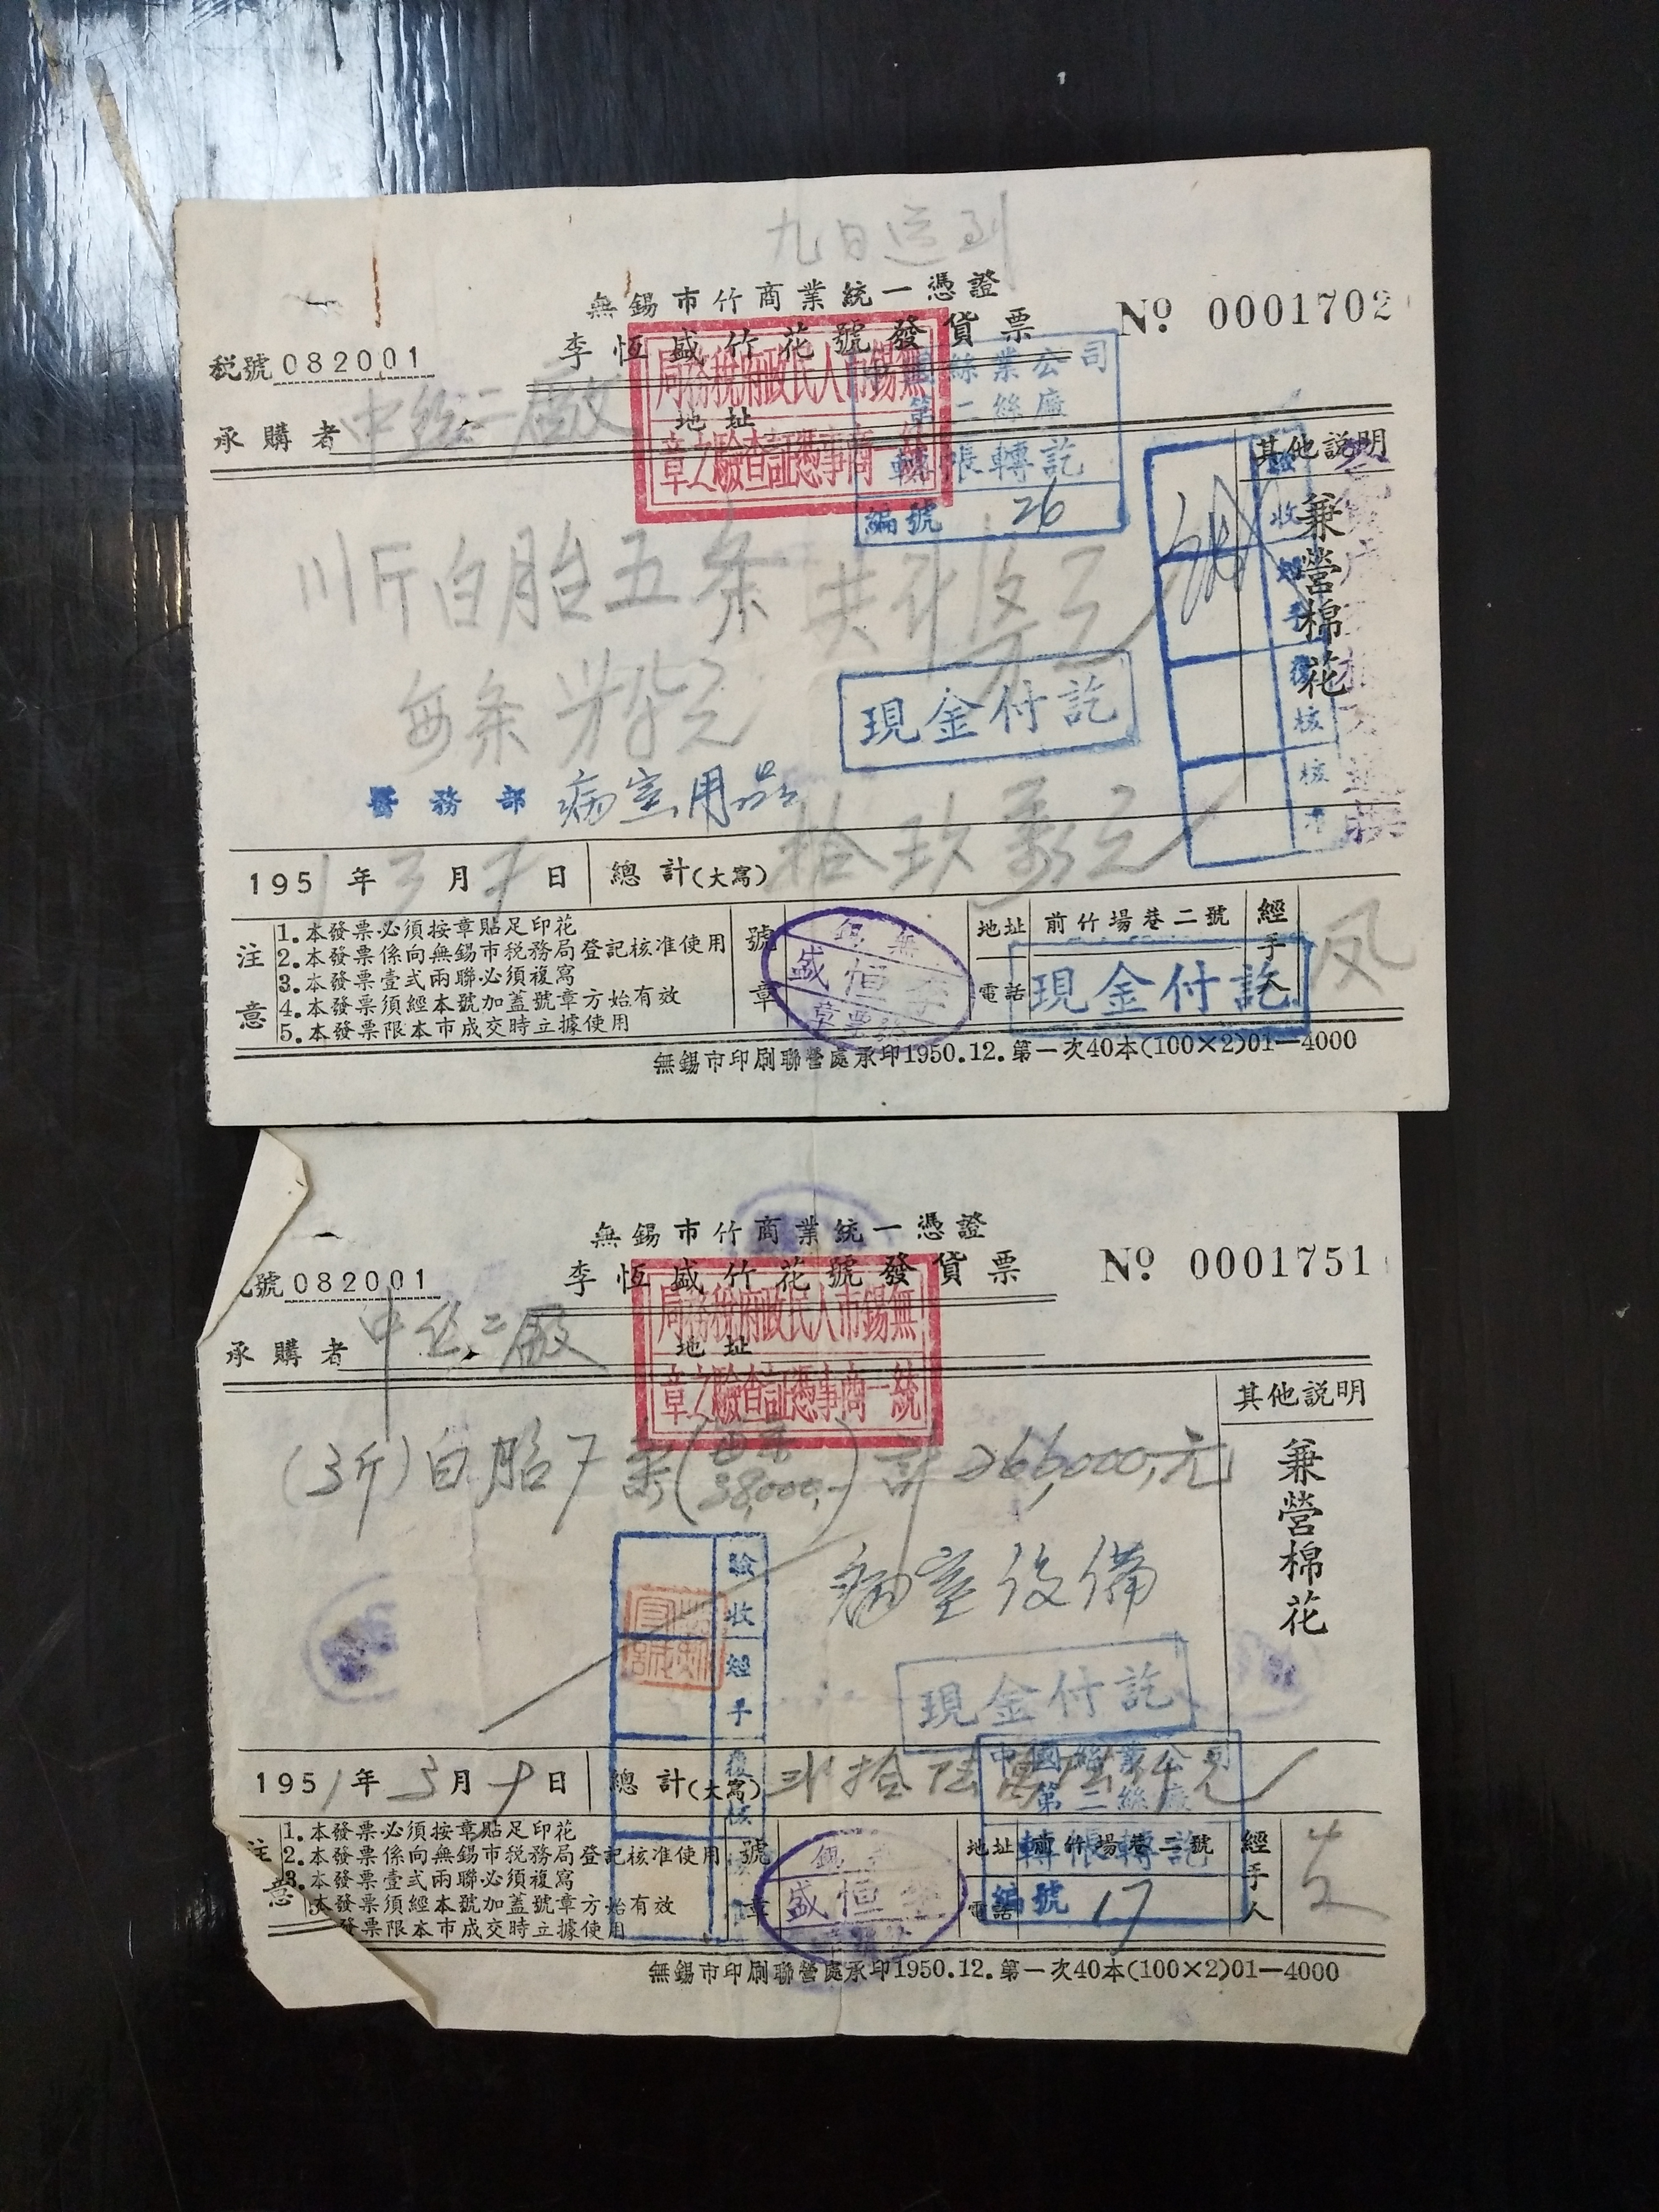 九日送到
無錫市竹商業統一憑證
李恆盛竹花號發貨票
No 0001702
税號 082001
地址
承購者 中絲二廠
無錫市人民政府税務局
統一商事憑証查驗之章
中國絲業公司
第二絲廠
轉帳轉訖
編號 26
其他説明
兼營棉花
驗收
經手
復核
核准
川斤白胎五条
每条
現金付訖
醫務部 病室用品
1951年3月7日
總計(大寫) 拾玖萬元
注意
1.本發票必須按章貼足印花
2.本發票係向無錫市税務局登記核准使用
3.本發票壹式兩聯必須複寫
4.本發票須經本號加蓋號章方始有效
5.本發票限本市成交時立據使用
號章
無錫
李恒盛
地址 前竹場巷二號
電話
現金付訖
經手人
無錫市印刷聯營處承印1950.12.第一次40本(100×2)01—4000
無錫市竹商業統一憑證
李恆盛竹花號發貨票
No 0001751
號 082001
地址
承購者 中絲二廠
無錫市人民政府税務局
統一商事憑証查驗之章
其他説明
兼營棉花
(3斤)白胎7条(每条38,000.-)計266,000.-元
病室设備
驗收
經手
復核
現金付訖
中國絲業公司
第二絲廠
轉帳轉訖
編號 17
1951年3月9日
總計(大寫) 弍拾陆萬陆仟元
注意
1.本發票必須按章貼足印花
2.本發票係向無錫市税務局登記核准使用
3.本發票壹式兩聯必須複寫
本發票須經本號加蓋號章方始有效
發票限本市成交時立據使用
號章
李恒盛
地址 前竹場巷二號
電話
經手人
無錫市印刷聯營處承印1950.12.第一次40本(100×2)01—4000